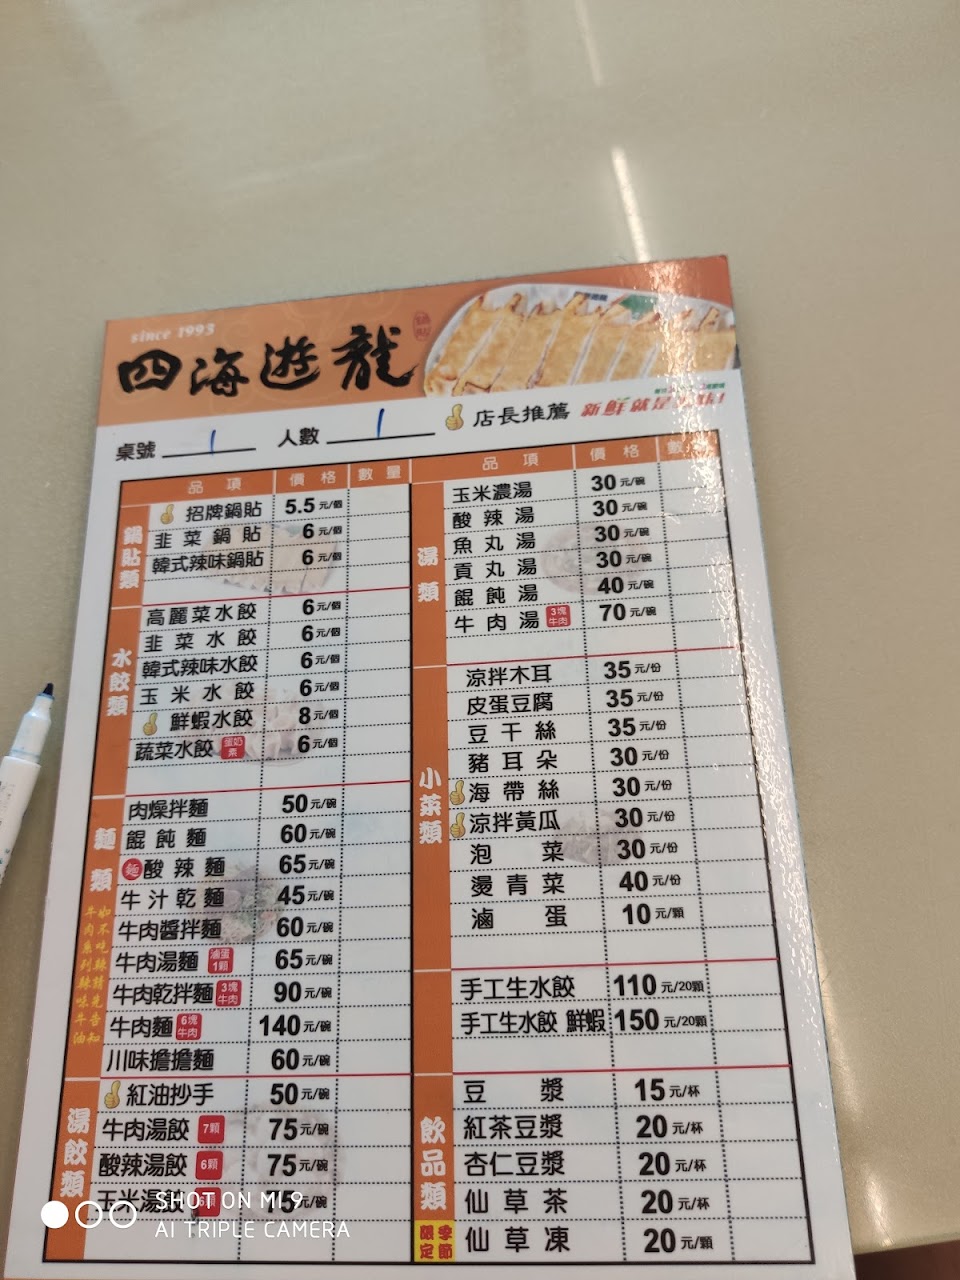 since 1993
四海遊龍
鍋貼
桌號 1 人數 1 店長推薦 新鮮就是
品項 價格 數量
鍋貼類
招牌鍋貼 5.5元/個
韭菜鍋貼 6元/個
韓式辣味鍋貼 6元/個
水餃類
高麗菜水餃 6元/個
韭菜水餃 6元/個
韓式辣味水餃 6元/個
玉米水餃 6元/個
鮮蝦水餃 8元/個
蔬菜水餃 蛋奶素 6元/個
麵類
如不吃辣請先告知
牛肉系列辣味牛油
肉燥拌麵 50元/碗
餛飩麵 60元/碗
麵 酸辣麵 65元/碗
牛汁乾麵 45元/碗
牛肉醬拌麵 60元/碗
牛肉湯麵 滷蛋1顆 65元/碗
牛肉乾拌麵 3塊牛肉 90元/碗
牛肉麵 6塊牛肉 140元/碗
川味擔擔麵 60元/碗
湯餃類
紅油抄手 50元/碗
牛肉湯餃 7顆 75元/碗
酸辣湯餃 6顆 75元/碗
玉米湯餃 75元/碗
品項 價格 數
湯類
玉米濃湯 30元/碗
酸辣湯 30元/碗
魚丸湯 30元/碗
貢丸湯 30元/碗
餛飩湯 40元/碗
牛肉湯 3塊牛肉 70元/碗
小菜類
涼拌木耳 35元/份
皮蛋豆腐 35元/份
豆干絲 35元/份
豬耳朵 30元/份
海帶絲 30元/份
涼拌黃瓜 30元/份
泡菜 30元/份
燙青菜 40元/份
滷蛋 10元/顆
手工生水餃 110元/20顆
手工生水餃 鮮蝦 150元/20顆
飲品類
豆漿 15元/杯
紅茶豆漿 20元/杯
杏仁豆漿 20元/杯
仙草茶 20元/杯
季節限定 仙草凍 20元/顆
SHOT ON MI 9
AI TRIPLE CAMERA